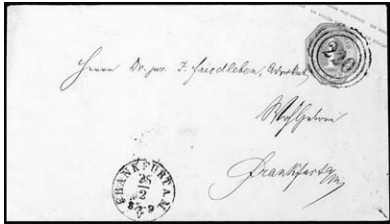 220
Herrn Dr. jur. F. Friedleben, Advokat,
Wohlgeboren
Frankfurt a/M
FRANKFURT A. M.
26
2
8-9